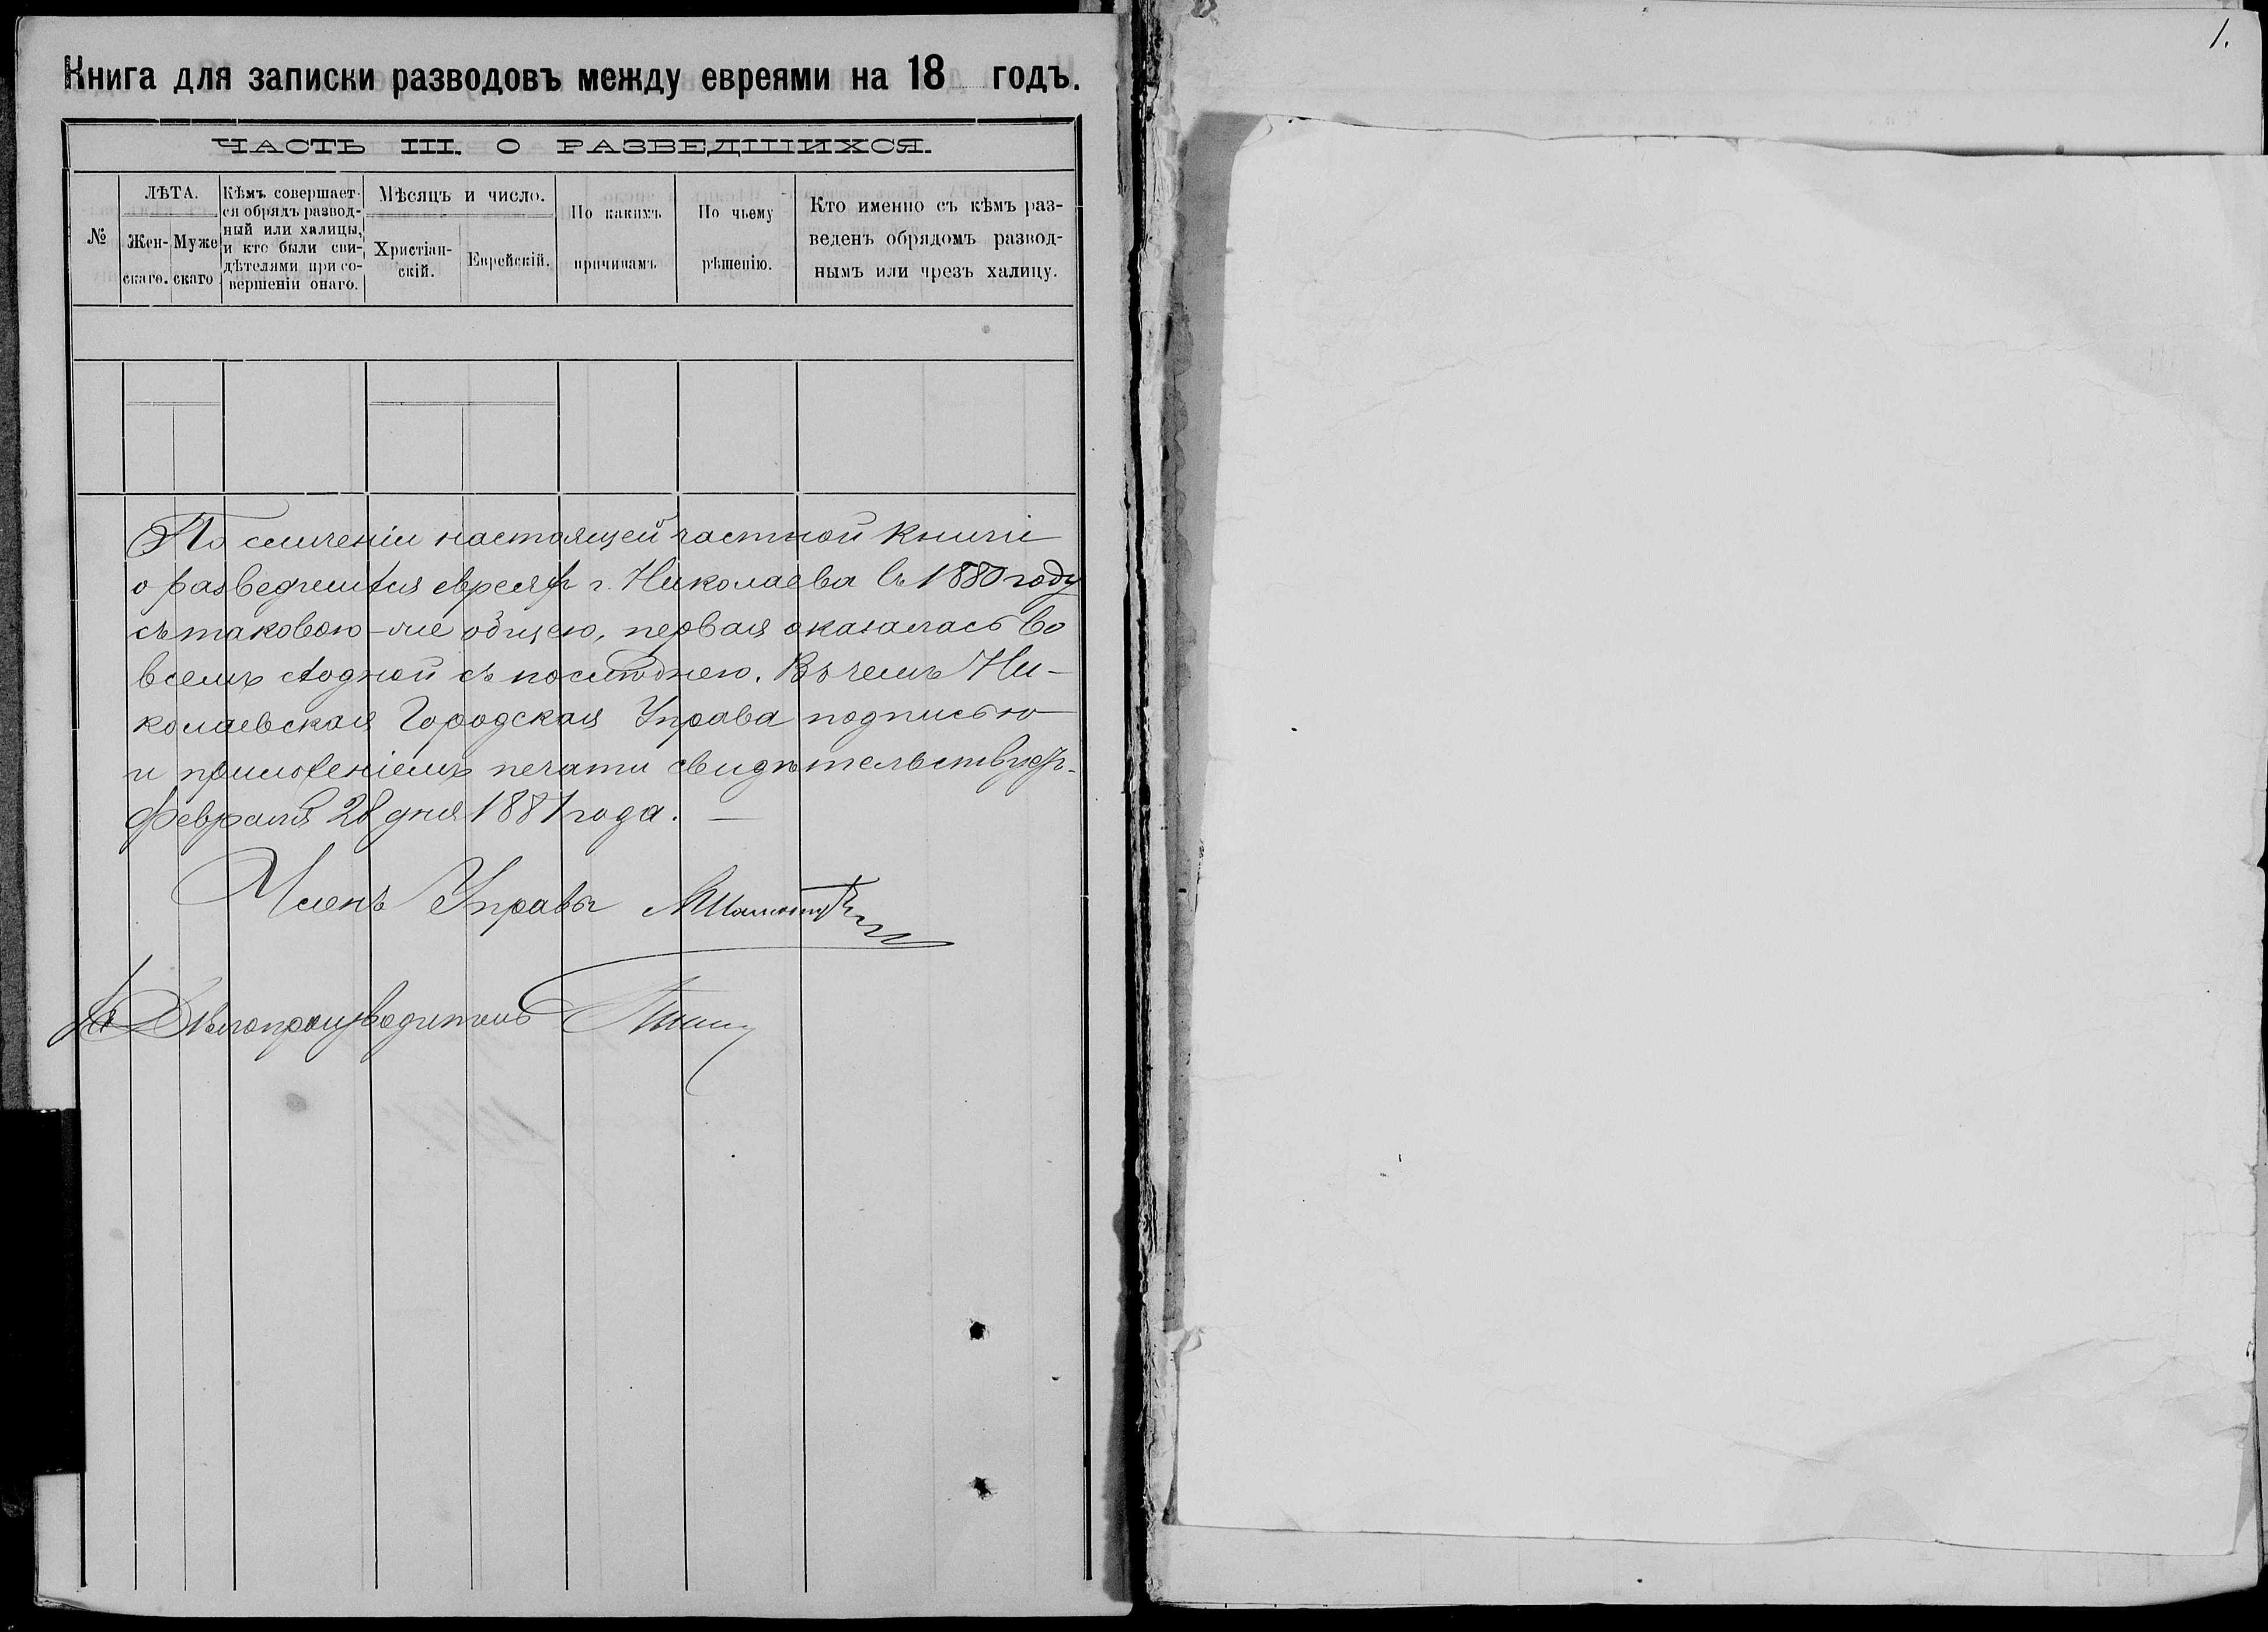 1.
Книга для записки разводовъ между евреями на 18 годъ.
ЧАСТЬ III. О РАЗВЕДШИХСЯ.
№
ЛѢТА.
Жен-
скаго.
Муже
скаго
Кѣмъ совершает-
ся обрядъ развод-
ный или халицы,
и кто были сви-
дѣтелями при со-
вершеніи онаго.
Мѣсяцъ и число.
Христіан-
скій.
Еврейскій.
По какимъ
причинамъ
По чьему
рѣшенію.
Кто именно съ кѣмъ раз-
веденъ обрядомъ развод-
нымъ или чрезъ халицу.
По сличеніи настоящей частной книги
о разведшихся евреяхъ г. Николаева въ 1880 году
съ таковою-же общею, первая оказалась во
всемъ сходной съ послѣднею. Въ чемъ Ни-
колаевская Городская Управа подписью
и приложеніемъ печати свидѣтельствуетъ.
Февраля 28 дня 1881 года. —
Членъ Управы
Дѣлопроизводитель